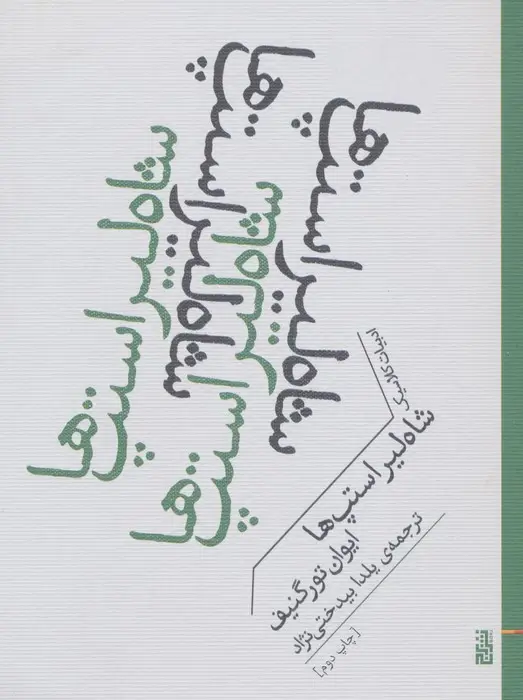 شاه لیر استپ‌ها
شاه لیر استپ‌ها
شاه لیر استپ‌ها
شاه لیر استپ‌ها
شاه لیر استپ‌ها
ادبیات کلاسیک
شاه لیر استپ‌ها
ایوان تورگنیف
ترجمه‌ی یلدا بیدختی‌نژاد
[چاپ دوم]